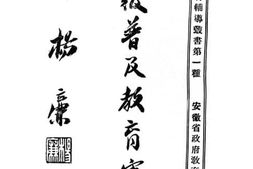 輔導叢書第一種
安徽省政府教
普及教育
楊廉